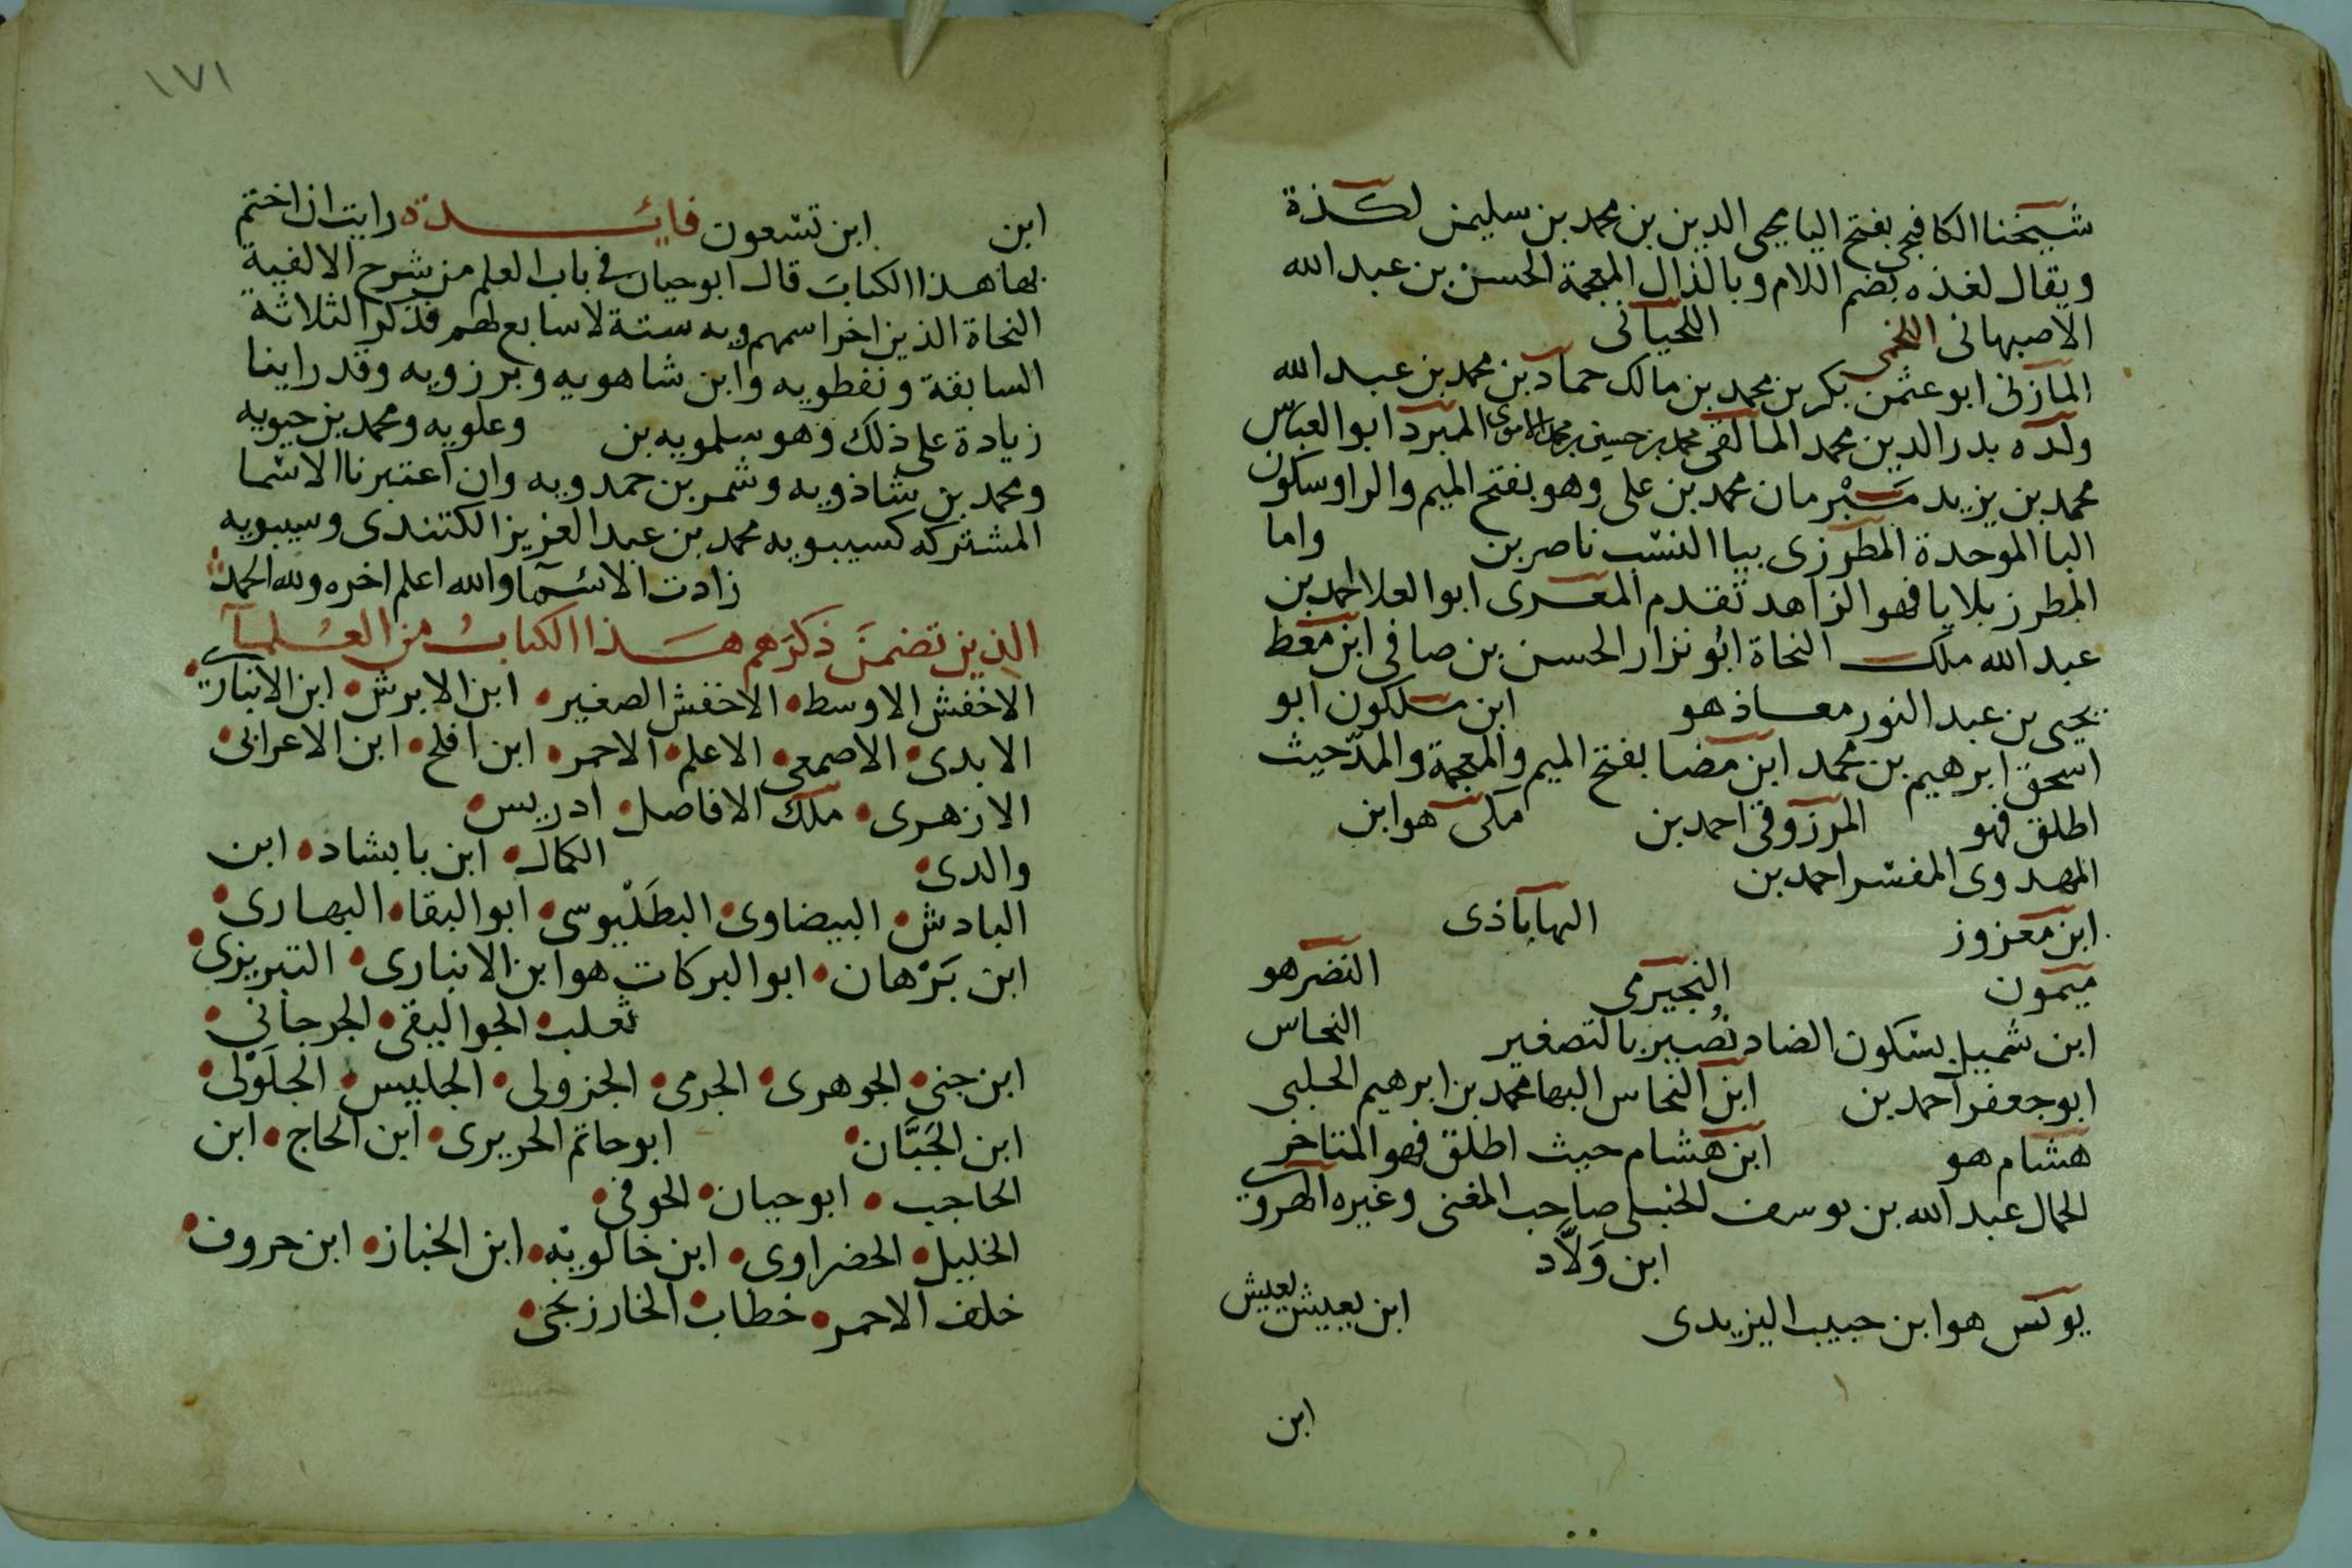 شيخنا الكافيجى بفتح اليا محيى الدين بن محمد بن سليمن لكذة
ويقال لغذه بضم اللام وبالذال المعجمة الحسن بن عبد الله
الاصبهانى اللخمى اللحيانى
المازنى ابو عثمن بكر بن محمد بن مالك حماد بن محمد بن عبد الله
ولده بدر الدين محمد المالقى محمد بن حسين بن محمد الاموى المبرد ابو العباس
محمد بن يزيد مبرمان محمد بن على وهو بفتح الميم والرا وسكون
البا الموحدة المطرزى بيا النسب ناصر بن واما
المطرز بلا يا فهو الزاهد تقدم المعرى ابو العلا احمد بن
عبد الله ملك النحاة ابو نزار الحسن بن صافى ابن معط
يحيى بن عبد النور معاذ هو ابن ملكون ابو
اسحق ابرهيم بن محمد ابن مضا بفتح الميم والمعجمة والمد حيث
اطلق فهو المرزوقى احمد بن مكى هو ابن
المهدوى المفسر احمد بن
ابن معزوز المهاباذى
ميمون النجيرمى النضر هو
ابن شميل بسكون الضاد نصير بالتصغير النحاس
ابو جعفر احمد بن ابن النحاس البها محمد بن ابرهيم الحلبى
هشام هو ابن هشام حيث اطلق فهو المتاخر
الجمال عبد الله بن يوسف الحنبلى صاحب المغنى وغيره الهروى
ابن ولاد
يونس هو ابن حبيب اليزيدى ابن يعيش يعيش
ابن
١٧١
ابن ابن تسعون فايدة رايت ان اختم
بها هذا الكتاب قال ابو حيان فى باب العلم من شرح الالفية
النحاة الذين اخر اسمهم ويه ستة لا سابع لهم فذكر الثلاثة
السابقة ونفطويه وابن شاهويه وبرزويه وقد راينا
زيادة على ذلك وهو سلمويه بن وعلويه ومحمد بن حيويه
ومحمد بن شاذويه وشمر بن حمدويه وان اعتبرنا الاسما
المشتركه كسيبويه محمد بن عبد العزيز الكتندى وسيبويه
زادت الاسما والله اعلم اخره ولله الحمد
الذين تضمن ذكرهم هذا الكتاب من العلما
الاخفش الاوسط الاخفش الصغير ابن الابرش ابن الانبارى
الابدى الاصمعى الاعلم الاحمر ابن افلح ابن الاعرابى
الازهرى ملك الافاضل ادريس
والدى الكمال ابن بابشاذ ابن
الباذش البيضاوى البطليوسى ابو البقا البهارى
ابن برهان ابو البركات هو ابن الانبارى التبريزى
ثعلب الجواليقى الجرجانى
ابن جنى الجوهرى الجرمى الجزولى الجليس الجلولى
ابن الجبان ابو حاتم الحريرى ابن الحاج ابن
الحاجب ابو حيان الحوفى
الخليل الخضراوى ابن خالويه ابن الخباز ابن خروف
خلف الاحمر خطاب الخارزنجى